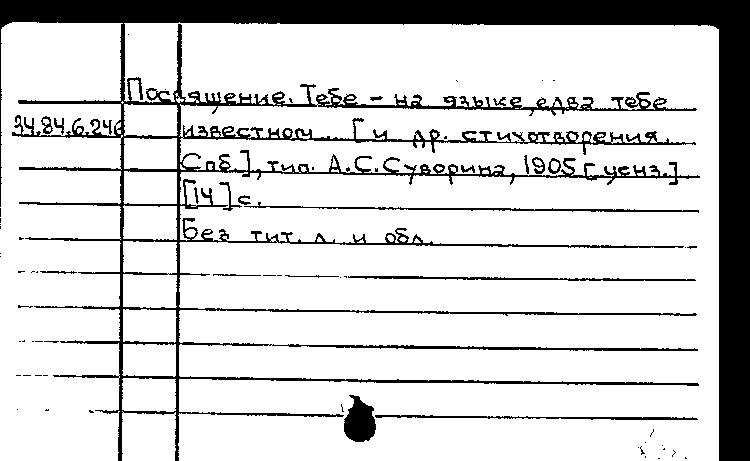 Посвящение. Тебе - на языке, едва тебе
34.84.6.246 известном... [и др. стихотворения.
Спб.], тип. А.С.Суворина, 1905 [ценз.].
[14] с.
Без тит. л. и обл.